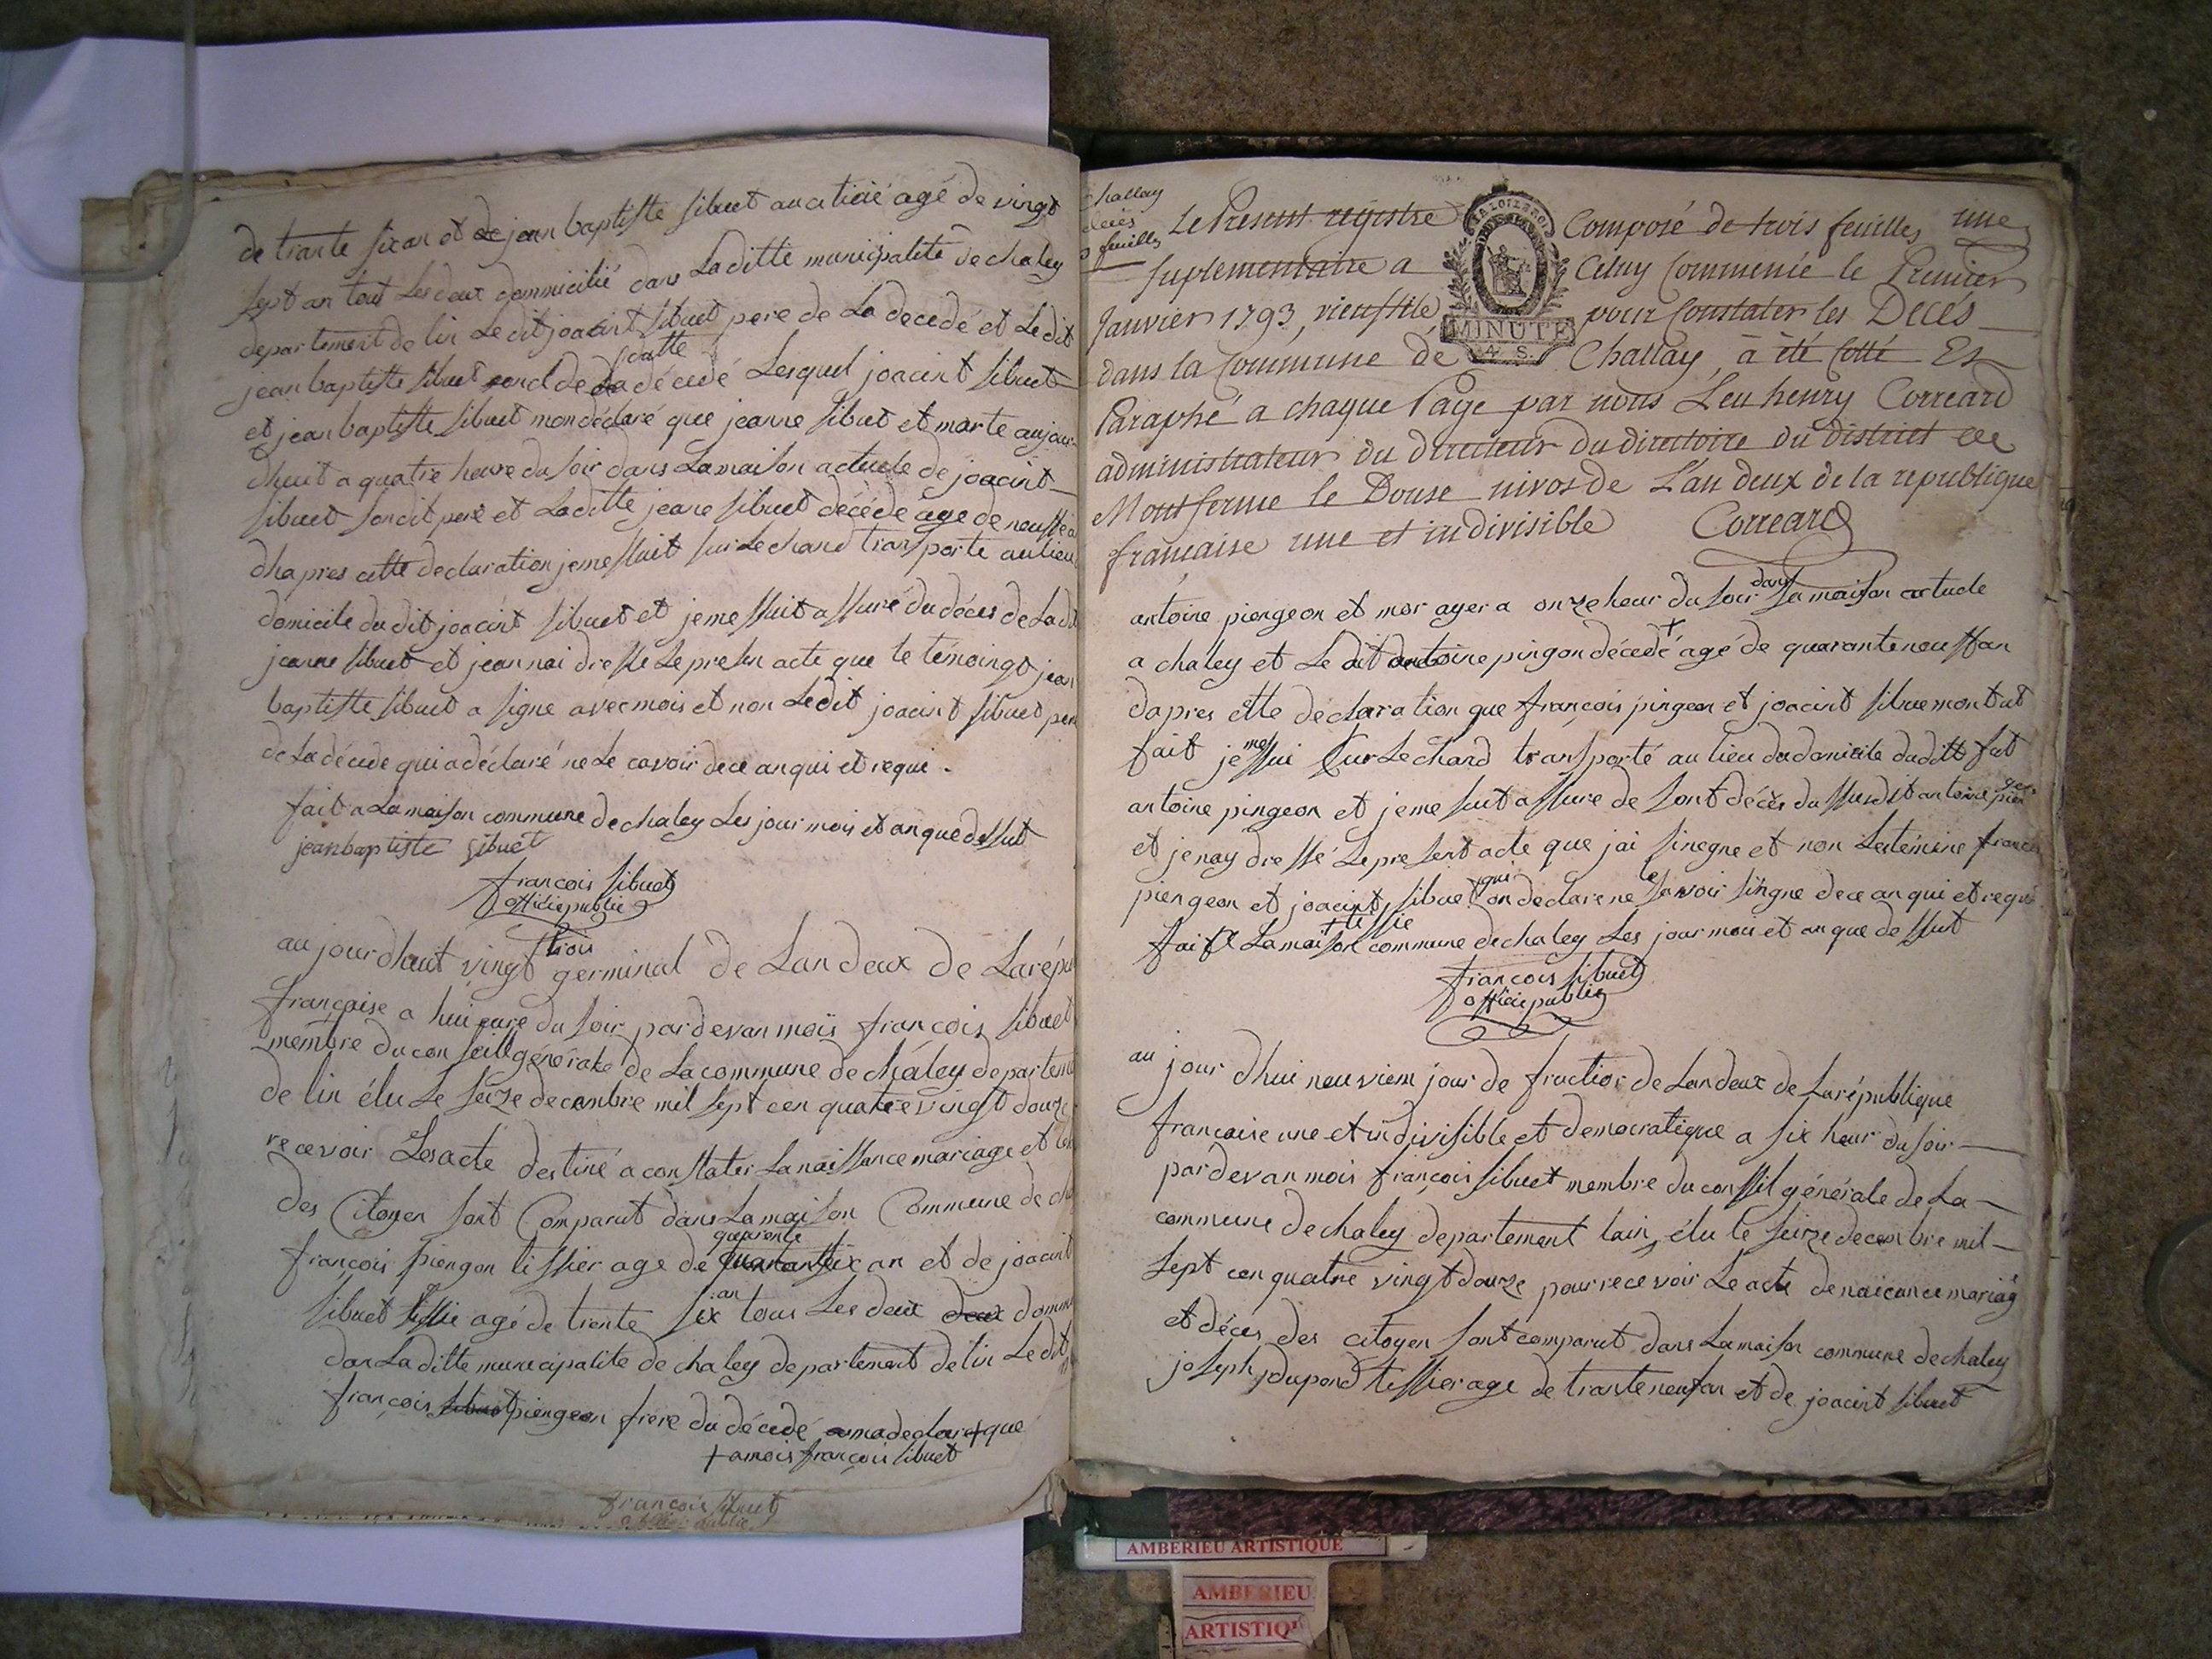 de trante sixan et de jean baptiste sibuet aucitivié agé de vingt
sept an tout Les deux dommicilié dans Laditte municipalité de chaley
departement de lin Le dit joacint sibuet pere de La decedé et Le dit
jean baptiste sibuet de La décedé Lesquel joacint sibuet
et jean baptiste sibuet mon déclaré que jeanne sibuet et morte aujour
dhuit a quatre heure du soir dans La maison actuele de joacint
sibuet son dit pere et Laditte jeane sibuet décédé age de neuff
dhapres cette declaration jeme ssuit sur Le chand transporté au lieu
domicile du dit joacint sibuet et jeme ssuit assuré du décés de La dit
jeanne sibuet et jean nai dressé Le presen acte que le témoingt jean
baptiste sibuet a signe avec mois et non Ledit joacint sibuet pere
de La décede qui a déclaré ne Le cavoir dece an qui et requi .
fait a La maison commune de chaley Les jour mois et an que dessut
jean baptiste sibuet
francois sibuet
officie public
trois
aujourdhuit vingt germinal de Lan deux de Larépu
française a hui eure du soir par devan mois françois sibuet
membre du conseill générale de La commune de chaley departem
de lin élu Le seize decembre mil sept cen quatre vingt douze
recevoir Les acte destiné a constater La naissance mariage et
des Citoyen sont Comparut dans La maison Commune de cha
quarente
françois piengon tissier age de six an et de joacint
an
sibuet tissie agé de trente six tous Les deux deux dommi
dan La ditte municipalité de chaley departement de lin Le dit
françois sibuet piengeon frere du décedé a ma declare + que
+ a mois françois sibuet
francois sibuet
officie public
Challay
décès
3 feuilles
Le Present registre Composé de trois feuilles une
suplementaire a Celuy Commencé le Premier
Janvier 1793, vieux stile pour Constater les Decés
dans la Commune de Challay, a été Cotté Et
LA LOI LE ROI
MINUTE
4. S.
Paraphé a chaque Page par nous Leu henry Correard
administrateur du directeur du directoire du district de
Montferme le Douse nivosde L'an deux de la republique
francaise une et indivisible Correard
dans
antoine piengeon et mor ayer a onze heur du soir sa maison actuele
+
a chaley et Le dit antoine pingon décedé agé de quarante neuff an
dapres ette declaration que françois pingeon et joacint sibue mon tut
me
fait je ssui sur Le chand transporté au lieu du domicile dudit fut
antoine pingeon et jeme suit assure de sont décès du susdit antoine pin
geon
et jenay dressé Le present acte que jai sinegne et non Les témine francois
qui le
piengeon et joacint sibuet on declare ne savoir singne dece an qui et requi
tissie
fait a La maison commune de chaley Les jour moii et an que dessut
francois sibuet
officie public
au jour dhui neuviem jour de fructior de Lan deux de Larépublique
francaise une et indivisible et democratique a six heur du soir
par devan mois françois sibuet membre du conssil générale de La
commune de chaley departement lain, élu le seize decembre mil
sept cen quatre vingt douze pour recevoir Le acte de naicance mariag
et déces des citoyen sont comparut dans La maison commune de chaley
joseph dupond tissier age de trante neuf an et de joacint sibuet
AMBERIEU ARTISTIQUE
AMBERIEU
ARTISTIQU